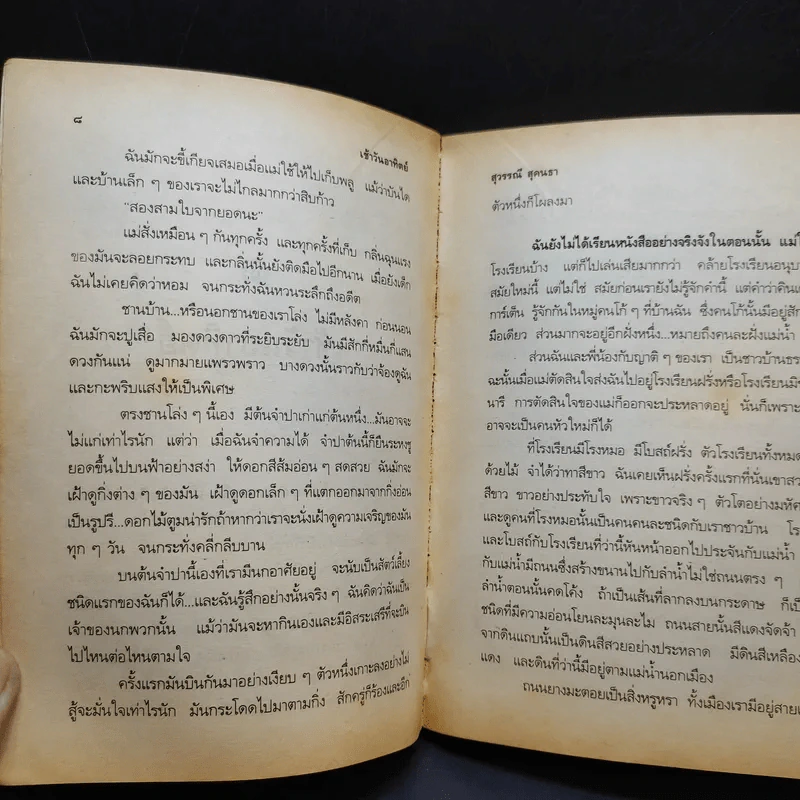 ๘
เช้าวันอาทิตย์
ฉันมักจะขี้เกียจเสมอเมื่อแม่ใช้ให้ไปเก็บพลู แม้ว่าบันได
และบ้านเล็ก ๆ ของเราจะไม่ไกลมากกว่าสิบก้าว
"สองสามใบจากยอดนะ"
แม่สั่งเหมือน ๆ กันทุกครั้ง และทุกครั้งที่เก็บ กลิ่นฉุนแรง
ของมันจะลอยกระทบ และกลิ่นนั้นยังติดมือไปอีกนาน เมื่อยังเด็ก
ฉันไม่เคยคิดว่าหอม จนกระทั่งฉันหวนระลึกถึงอดีต
ชานบ้าน...หรือนอกชานของเราโล่ง ไม่มีหลังคา ก่อนนอน
ฉันมักจะปูเสื่อ มองดวงดาวที่ระยิบระยับ มันมีสักกี่หมื่นกี่แสน
ดวงกันแน่ ดูมากมายแพรวพราว บางดวงนั้นราวกับว่าจ้องดูฉัน
และกะพริบแสงให้เป็นพิเศษ
ตรงชานโล่ง ๆ นี้เอง มีต้นจำปาเก่าแก่ต้นหนึ่ง...มันอาจจะ
ไม่แก่เท่าไรนัก แต่ว่า เมื่อฉันจำความได้ จำปาต้นนี้ก็ยืนระหงชู
ยอดขึ้นไปบนฟ้าอย่างสง่า ให้ดอกสีส้มอ่อน ๆ สดสวย ฉันมักจะ
เฝ้าดูกิ่งต่าง ๆ ของมัน เฝ้าดูดอกเล็ก ๆ ที่แตกออกมาจากกิ่งอ่อน
เป็นรูปรี...ดอกไม้ตูมน่ารักถ้าหากว่าเราจะนั่งเฝ้าดูความเจริญของมัน
ทุก ๆ วัน จนกระทั่งคลี่กลีบบาน
บนต้นจำปานี้เองที่เรามีนกอาศัยอยู่ จะนับเป็นสัตว์เลี้ยง
ชนิดแรกของฉันก็ได้...และฉันรู้สึกอย่างนั้นจริง ๆ ฉันคิดว่าฉันเป็น
เจ้าของนกพวกนั้น แม้ว่ามันจะหากินเองและมีอิสระเสรีที่จะบิน
ไปไหนต่อไหนตามใจ
ครั้งแรกมันบินกันมาอย่างเงียบ ๆ ตัวหนึ่งเกาะลงอย่างไม่
สู้จะมั่นใจเท่าไรนัก มันกระโดดไปมาตามกิ่ง สักครู่ก็ร้องและอีก
สุวรรณี สุคนธา
ตัวหนึ่งก็โผลงมา
ฉันยังไม่ได้เรียนหนังสืออย่างจริงจังในตอนนั้น แม่
โรงเรียนบ้าง แต่ก็ไปเล่นเสียมากกว่า คล้ายโรงเรียนอนุบา
สมัยใหม่นี้ แต่ไม่ใช่ สมัยก่อนเรายังไม่รู้จักคำนี้ แต่คำว่าคินเ
การ์เต็น รู้จักกันในหมู่คนโก้ ๆ ที่บ้านฉัน ซึ่งคนโก้นั้นมีอยู่สัก
มือเดียว ส่วนมากจะอยู่อีกฝั่งหนึ่ง...หมายถึงคนละฝั่งแม่น้ำ
ส่วนฉันและพี่น้องกับญาติ ๆ ของเรา เป็นชาวบ้านธร
ฉะนั้นเมื่อแม่ตัดสินใจส่งฉันไปอยู่โรงเรียนฝรั่งหรือโรงเรียนมิช
นารี การตัดสินใจของแม่ก็ออกจะประหลาดอยู่ นั่นก็เพรา
อาจจะเป็นคนหัวใหม่ก็ได้
ที่โรงเรียนมีโรงหมอ มีโบสถ์ฝรั่ง ตัวโรงเรียนทั้งหมด
ด้วยไม้ จำได้ว่าทาสีขาว ฉันเคยเห็นฝรั่งครั้งแรกที่นั่นเขาสว
สีขาว ขาวอย่างประทับใจ เพราะขาวจริง ๆ ตัวโตอย่างมหัศ
และดูคนที่โรงหมอนั้นเป็นคนคนละชนิดกับเราชาวบ้าน โร
และโบสถ์กับโรงเรียนที่ว่านี้หันหน้าออกไปประจันกับแม่น้ำ
กับแม่น้ำมีถนนซึ่งสร้างขนานไปกับลำน้ำไม่ใช่ถนนตรง ๆ
ลำน้ำตอนนั้นคดโค้ง ถ้าเป็นเส้นที่ลากลงบนกระดาษ ก็เป็
ชนิดที่มีความอ่อนโยนละมุนละไม ถนนสายนั้นสีแดงจัดจ้า
จากดินแถบนั้นเป็นดินสีสวยอย่างประหลาด มีดินสีเหลือง
แดง และดินที่ว่านี้มีอยู่ตามแม่น้ำนอกเมือง
ถนนยางมะตอยเป็นสิ่งหรูหรา ทั้งเมืองเรามีอยู่สายเ